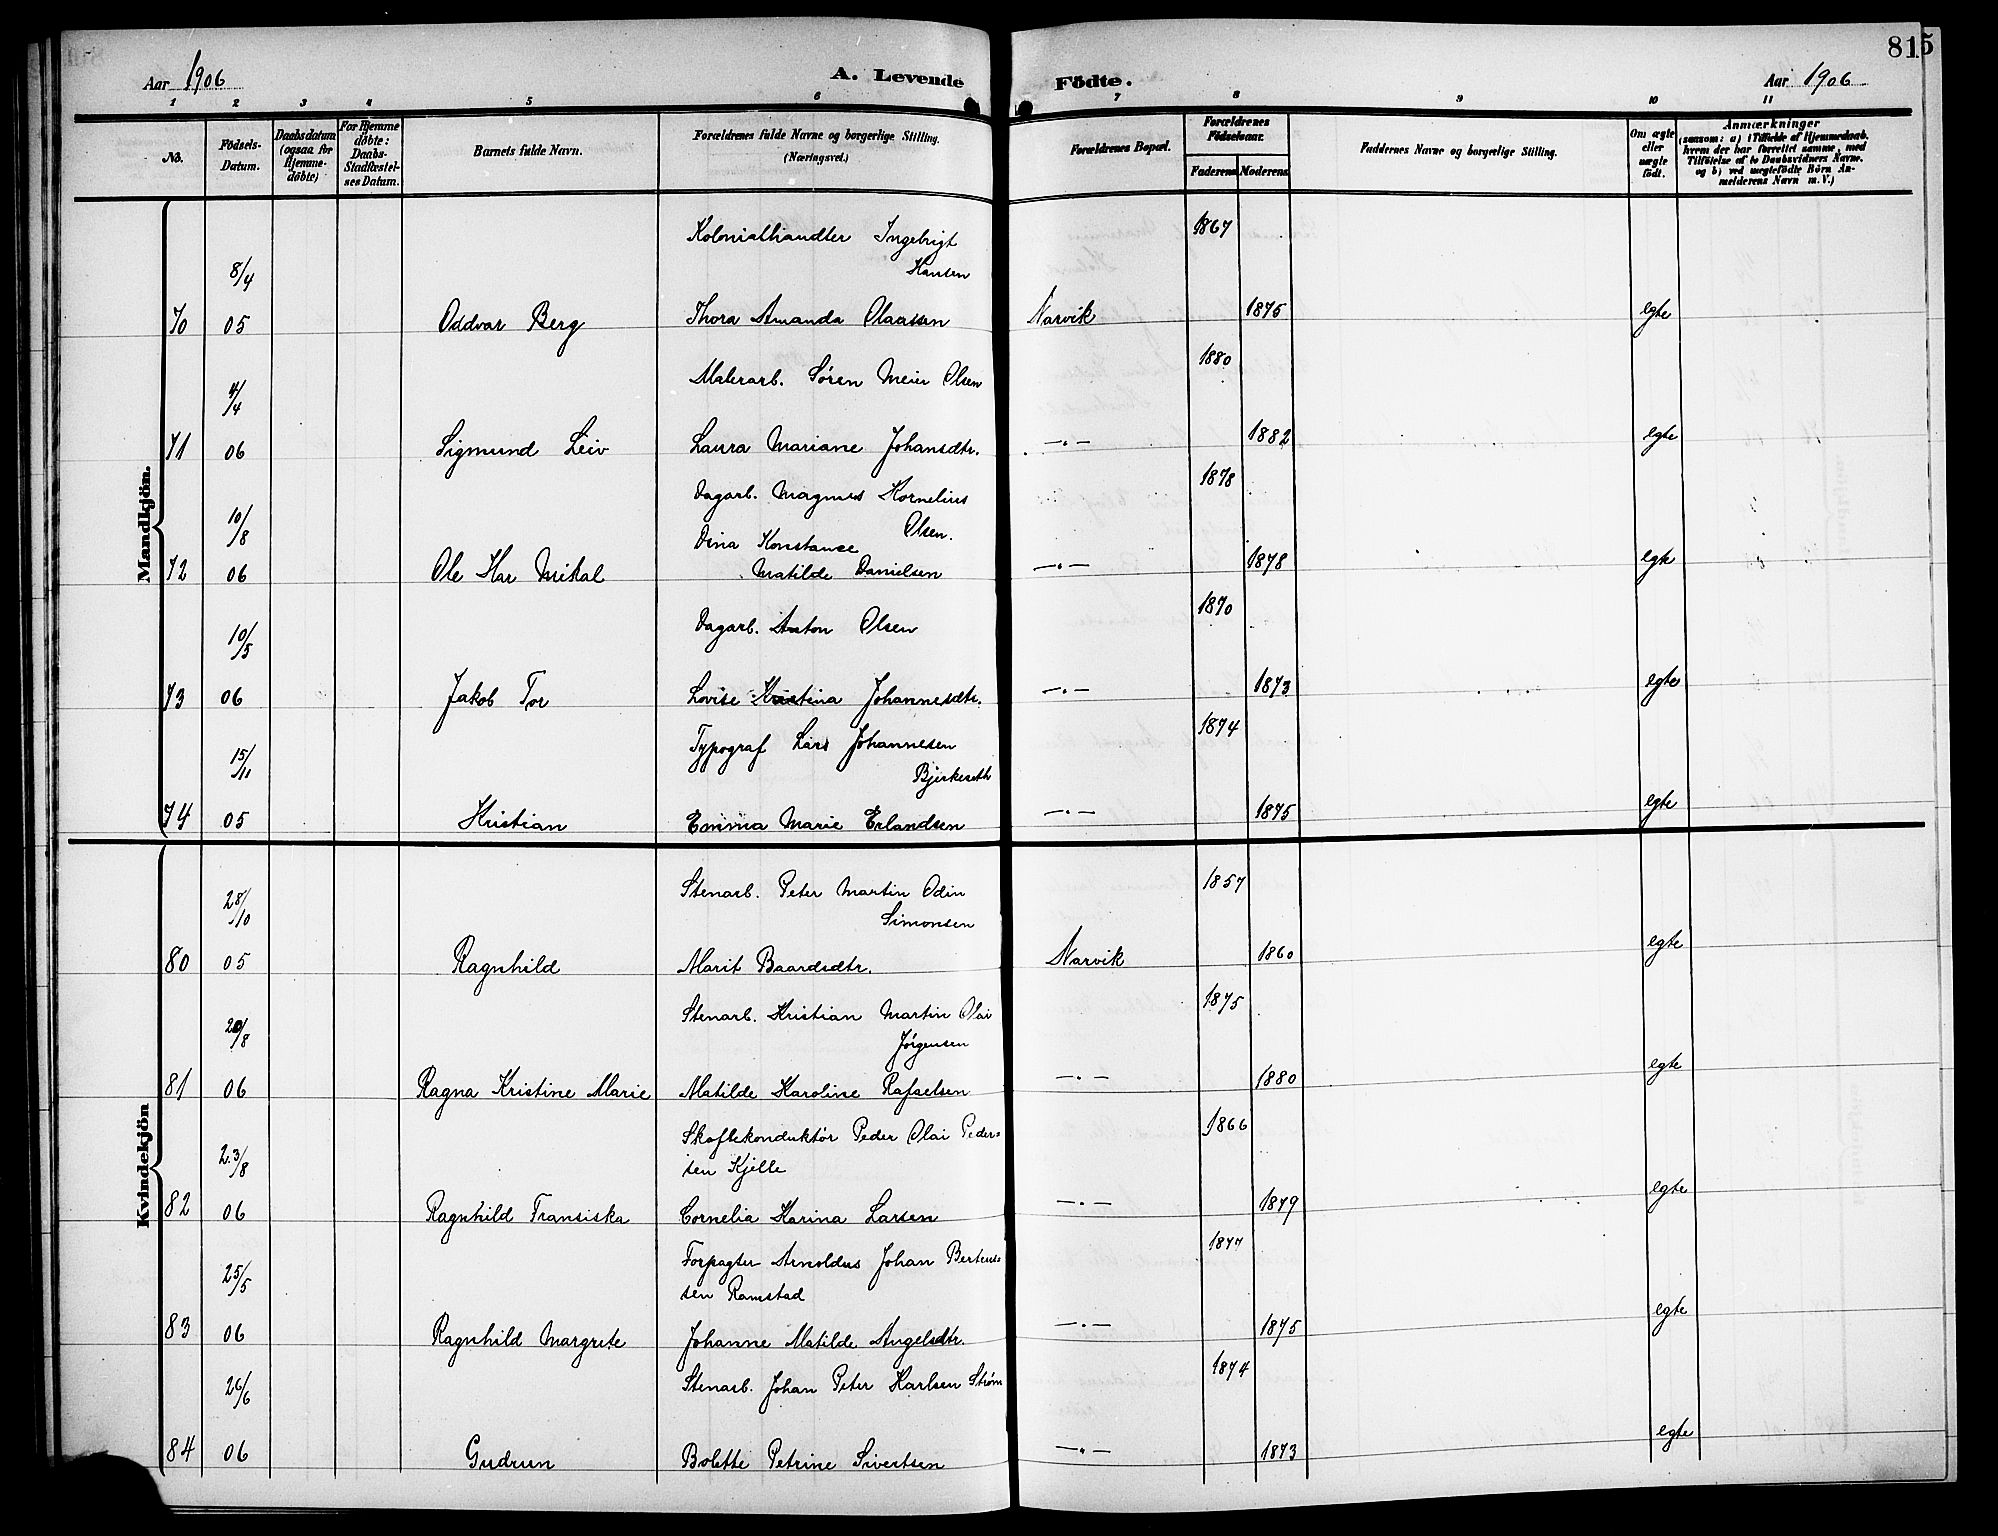 815
Aar 1906
A. Levende
Födte.
Aar 1906
1 2 3 4 5 6 7 8 9 10 11
No.
Födsels-
Datum.
Daabsdatum
(ogsaa for
Hjemme-
döbte)
For Hjemme
döbte:
Daabs-
Stadfæstel-
ses Datum.
Barnets fulde Navn.
Forældrenes fulde Navne og borgerlige Stilling.
(Næringsvei.)
Forældrenes Bopæl.
Forældrenes
Födselsaar.
Faderens
Moderens
Faddernes Navne og borgerlige Stilling.
Om ægte
eller
uægte
födt.
Anmærkninger
(saasom: a) i Tilfælde af Hjemmedaab,
hvem der har forrettet samme, med
Tilföielse af to Daabsvidners Navne.
og b) ved uægtefödte Börn An-
melderens Navn m. V.)
Mandkjön.
Kolonialhandler Ingebrigt 1867
8/4 Hansen
70 05 Oddvar Berg Thora Amanda Olaussen Narvik 1875 egte
Malerarb. Søren Meier Olsen 1880
4/4
71 06 Sigmund Leiv Laura Mariane Johansdtr. —〃— 1882 egte
Dagarb. Magnus Kornelius 1878
10/8 Olsen.
Dina Konstance
72 06 Ole Kar Mikal Matilde Danielsen —〃— 1878 egte
Dagarb. Anton Olsen 1870
10/5
73 06 Jakob Tor Lovise Kristina Johannesdtr. —〃— 1873 egte
Typograf Lars Johannesen 1874
15/11 Bjerkeseth
74 05 Kristian Emma Marie Erlandsen —〃— 1875 egte
Kvindekjön
Stenarb. Peter Martin Odin 1857
28/10 Simonsen
80 05 Ragnhild Marit Baardsdtr. Narvik 1860 egte
Stenarb. Kristian Martin Olai 1875
20/8 Jørgensen
81 06 Ragna Kristine Marie Matilde Karoline Rafaelsen —〃— 1880 egte
Skoftekonduktør Peder Olai Peder= 1866
23/8 sen Kjelle
82 06 Ragnhild Fransiska Cornelia Karina Larsen —〃— 1879 egte
Forpagter Arnoldus Johan Bertens= 1877
25/5 sen Ramstad
83 06 Ragnhild Margrete Johanne Matilde Angelsdtr. —〃— 1875 egte
Stenarb. Johan Peter Karlsen Strøm 1874
26/6
84 06 Gudrun Bolette Petrine Sivertsen —〃— 1873 egte